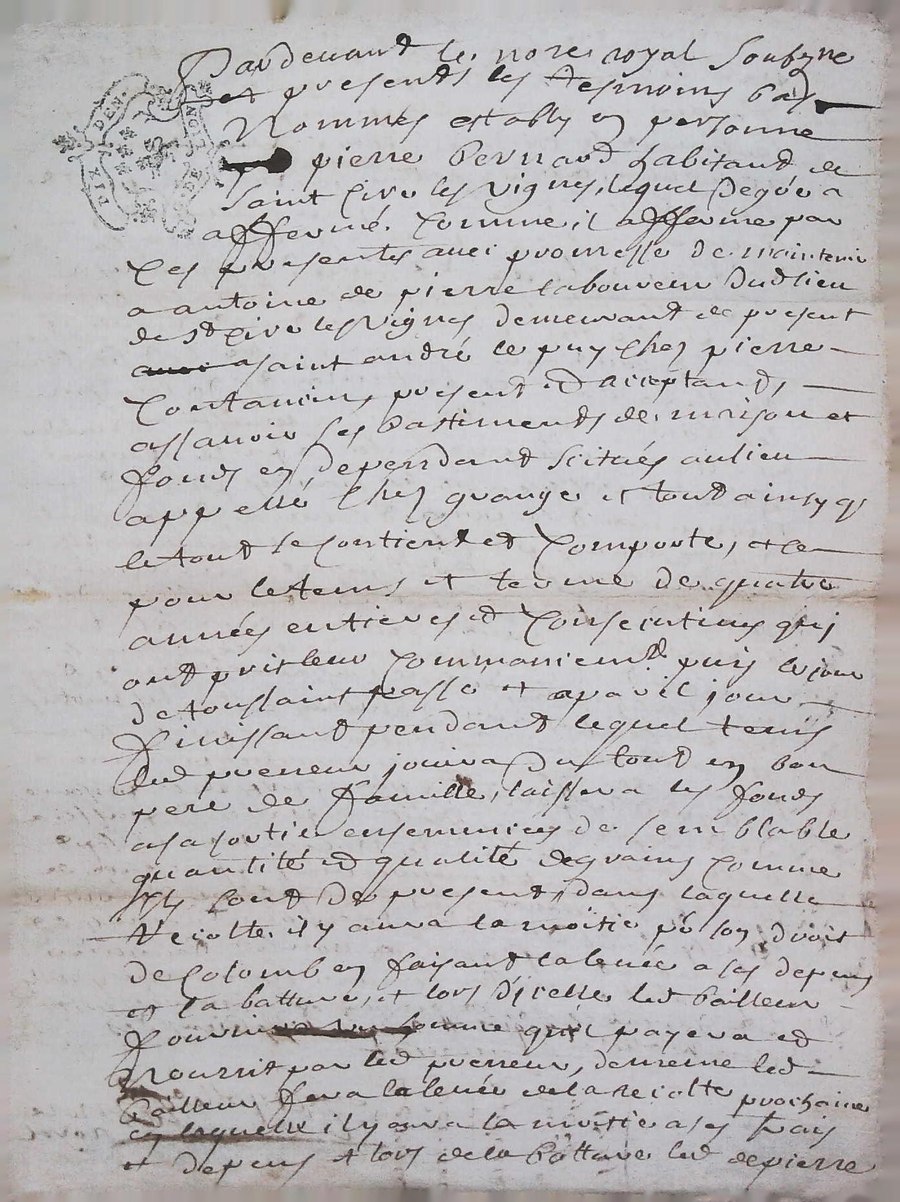 DIX DEN.
DE LYON
Pardevant le nore royal Soubzne
et presents les tesmoins bas
Nommés estably en personne
pierre Bernard habitant de
Saint Cire les vignes, lequel de gré a
affermé. Comme il afferme par
Ces presentes avec promesse de maintenir
a antoine de pierre laboureur dudt lieu
de st Cire les vignes demeurant de present
a saint andré le puy chez pierre
present et acceptant,
assavoir ses bastiments de maison et
fonds en dependant scitués au lieu
appellé Chez grange et tout ainsy q
le tout se Contient et Comporte, et ce
pour le tems et terme de quatre
années entieres et Consecutives quj
ont pris leur Commancemt puis le jour
de toussaint passé et a pareil jour
finissant pendant lequel tems
led preneur jouira du tout en bon
pere de famille, laissera les fonds
a sa sortie ensemencés de semblable
quantité et qualité de grains Comme
Ils sont de present, dans laquelle
recolte il y aura la moitié pr son droit
de Colomb en faisant la levée a ses depens
et la batture, et lors d'icelle led bailleur
fournira homme quil payera et
Nourrit par led preneur, de meme led
Bailleur fera la levée de la recolte prochaine
en laquelle il y aura la moitié a ses frais
et depens et lors de la batture led de pierre